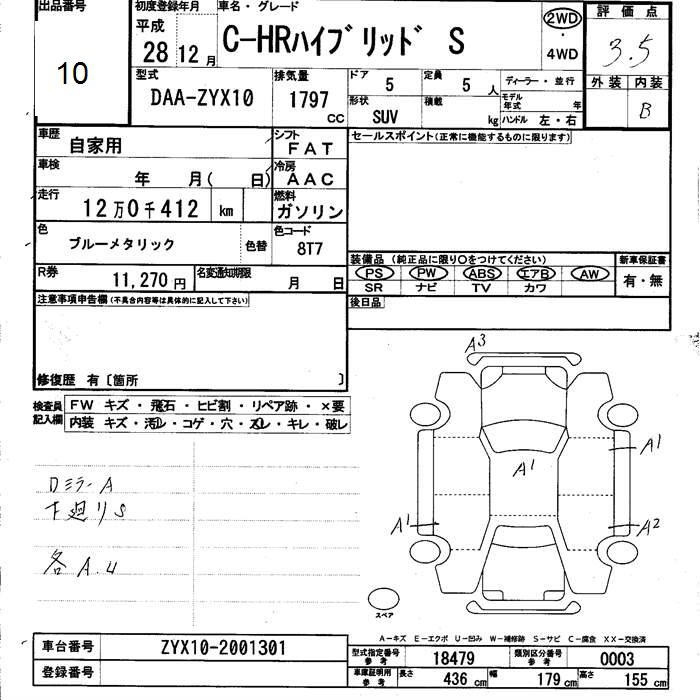 出品番号
10
初度登録年月
平成
28 12 月
車名・グレード
C-HRハイブリッド S
2WD
・
4WD
評価点
3.5
外装 内装
B
型式
DAA-ZYX10
排気量
1797
CC
ドア
5
定員
5 人
ディーラー・並行
モデル年式 年
形状
SUV
積載
kg
ハンドル 左・右
車歴
自家用
シフト
FAT
セールスポイント(正常に機能するものに限ります)
車検
年 月( 日)
冷房
AAC
走行
12万0千412 km
燃料
ガソリン
色
ブルーメタリック
色替
色コード
8T7
装備品 (純正品に限り○をつけてください)
新車保証書
PS PW ABS エアB AW
有・無
SR ナビ TV カワ
R券
11,270 円
名変通知期限
月 日
後日品
注意事項申告欄(不具合内容等は具体的に記入して下さい)
修復歴 有〔箇所 〕
検査員記入欄
FW キズ・飛石・ヒビ割・リペア跡・×要
内装 キズ・汚レ・コゲ・穴・スレ・キレ・破レ
ロミラーA
下廻りS
各A.U
A3
A1
A1
A1
A2
スペア
A-キズ E-エクボ U-凹み W-補修跡 S-サビ C-腐食 XX-交換済
車台番号
ZYX10-2001301
型式指定番号
参考
18479
類別区分番号
参考
0003
登録番号
車庫証明用
参考
長さ
436 cm
幅
179 cm
高さ
155 cm